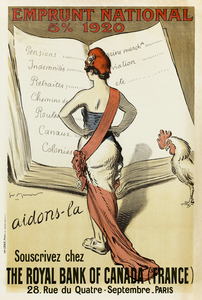 EMPRUNT NATIONAL
5% 1920
Pensions
Indemnités
viation
Retraites
etc
Chemins
Routes
Canaux
Colonies
aidons-la
Souscrivez chez
THE ROYAL BANK OF CANADA (FRANCE)
28. Rue du Quatre-Septembre. PARIS